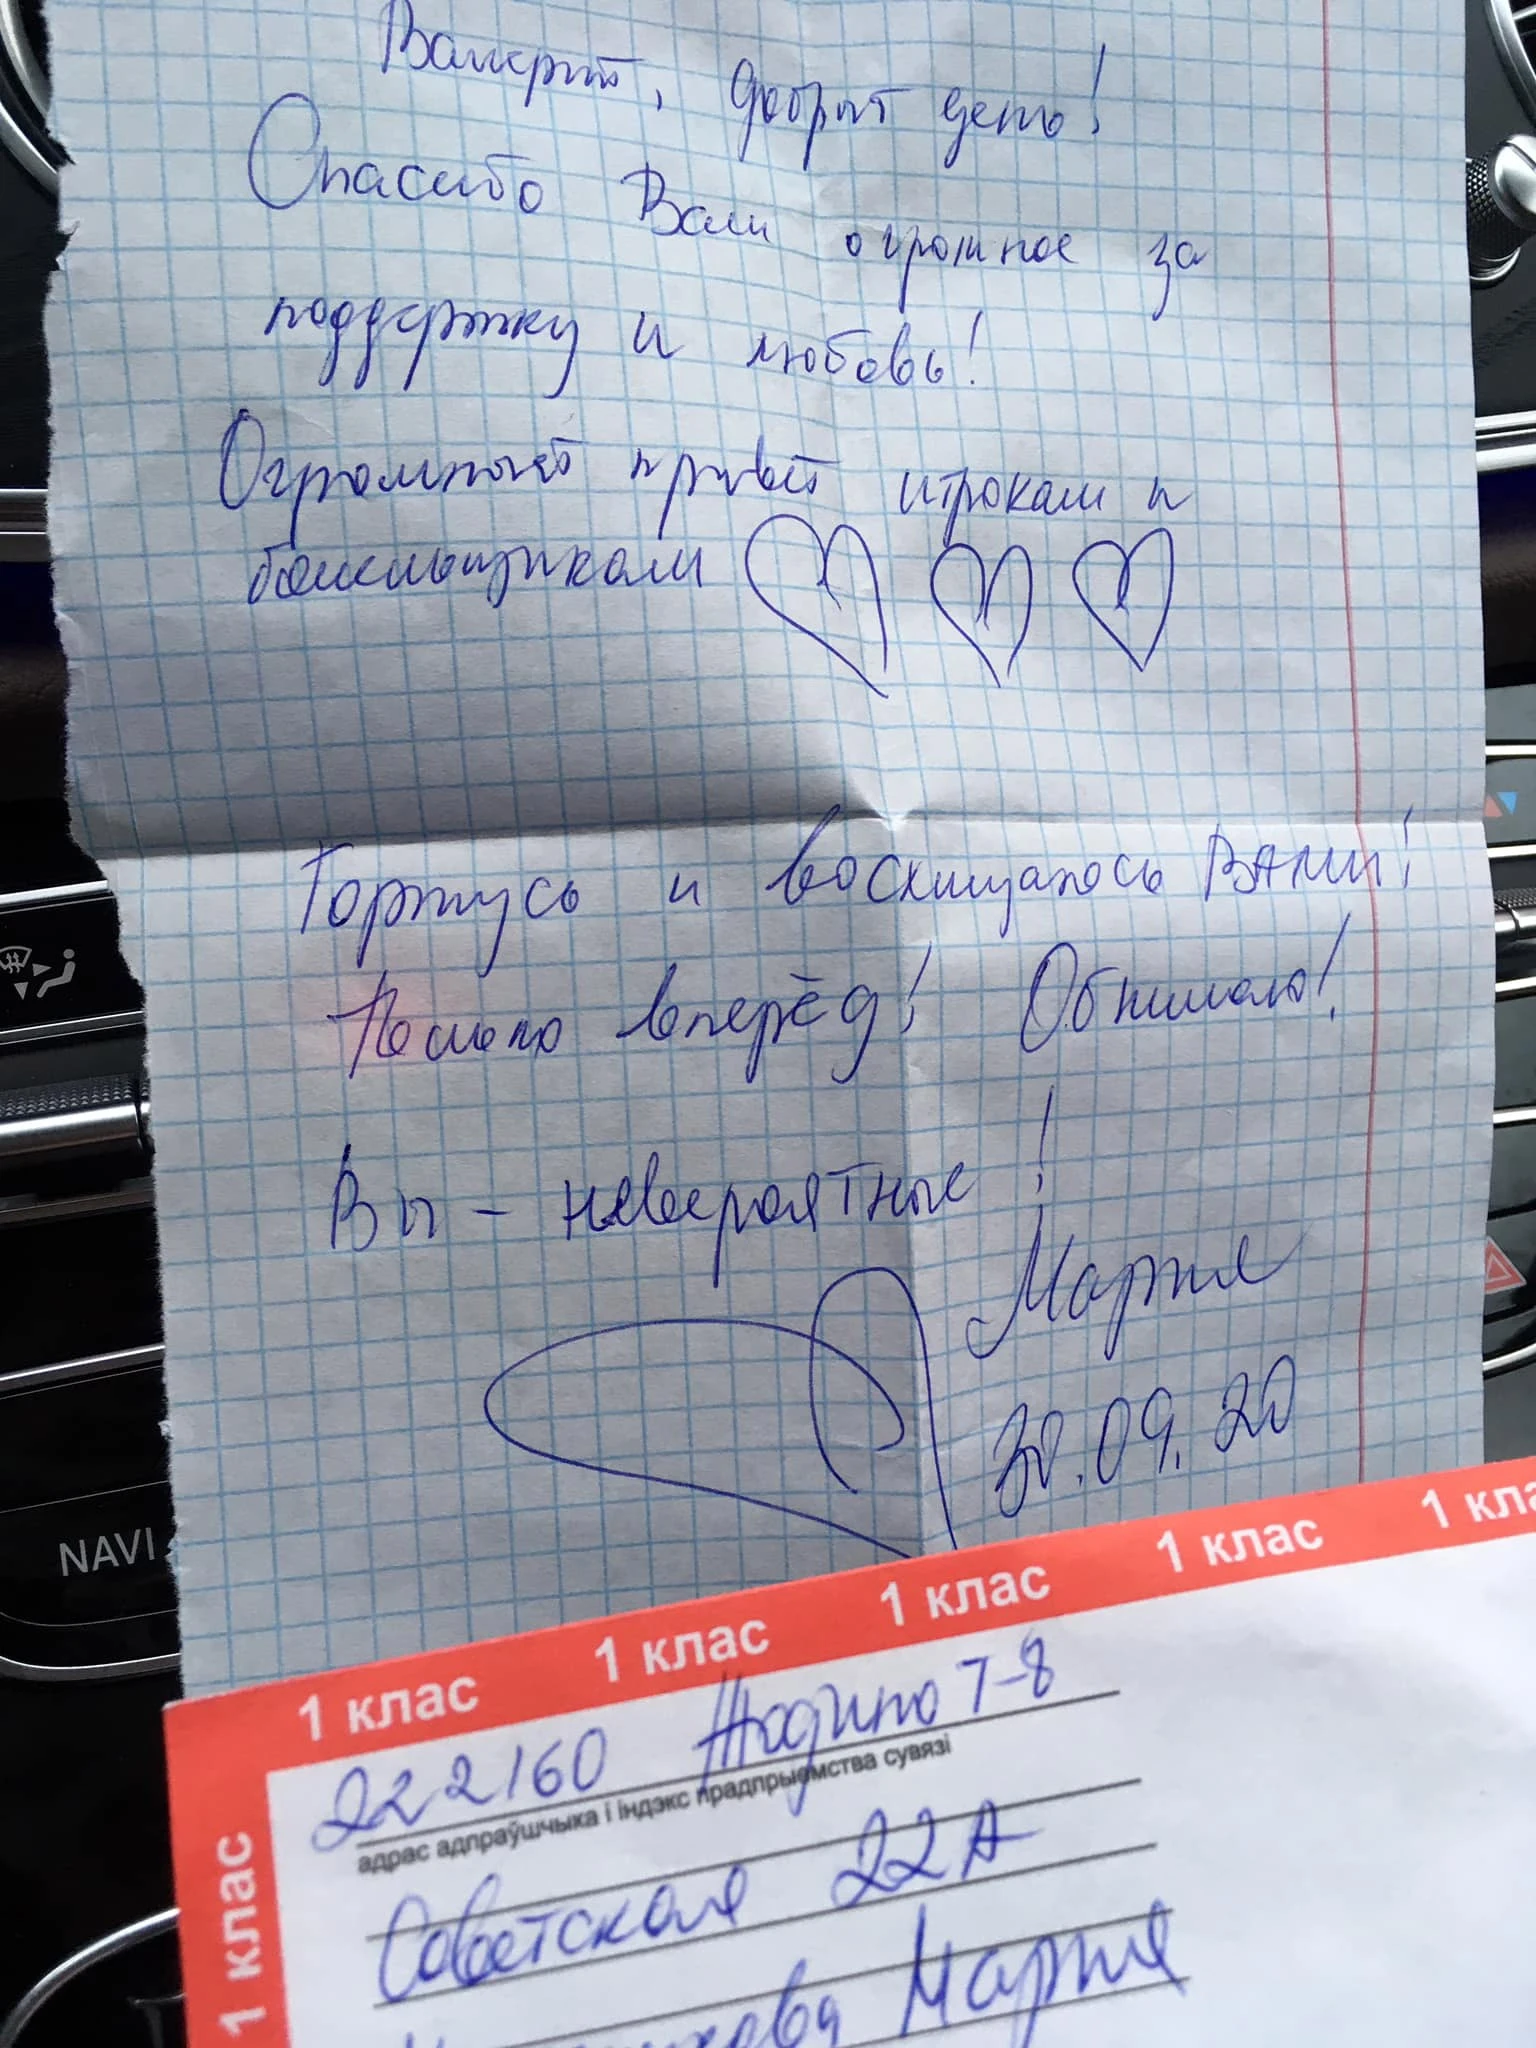 Валерий, добрый день!
Спасибо Вам огромное за
поддержку и любовь!
Огромный привет игрокам и
болельщикам
Горжусь и восхищаюсь ВАМИ!
Только вперёд! Обнимаю!
Вы - невероятные!
Мария
30.09.20
NAVI
1 клас 1 клас 1 клас 1 клас 1 кла
1 клас
222160 Жодино 7-8
адрас адпраўшчыка і індэкс прадпрыемства сувязі
Советская 22А
Мария